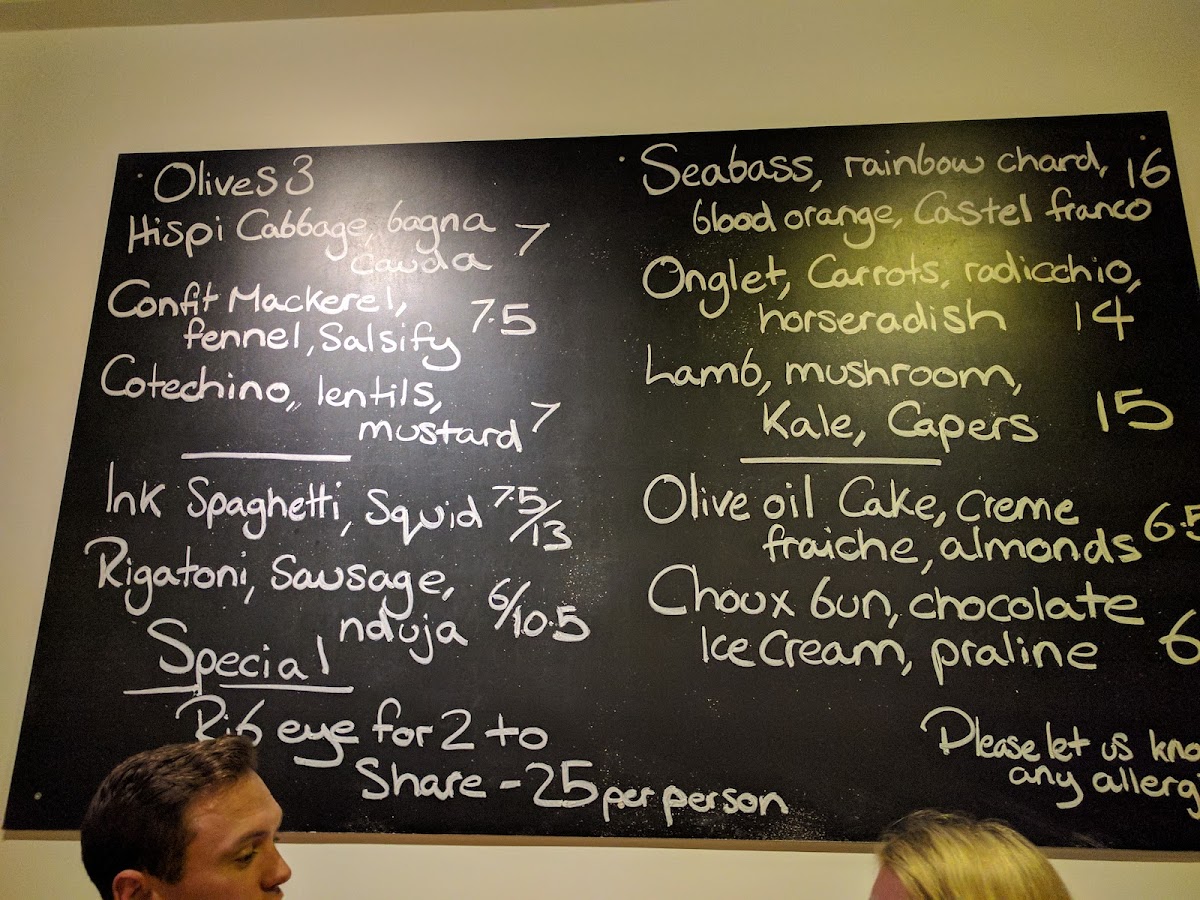 Olives 3
Hispi Cabbage, bagna 7
cauda
Confit Mackerel, 7.5
fennel, Salsify
Cotechino, lentils,
mustard 7
Ink Spaghetti, Squid 7.5/13
Rigatoni, Sausage,
nduja 6/10.5
Special
Rib eye for 2 to
Share - 25 per person
Seabass, rainbow chard, 16
blood orange, Castel franco
Onglet, Carrots, radicchio,
horseradish 14
Lamb, mushroom,
Kale, Capers 15
Olive oil Cake, creme 6.5
fraiche, almonds
Choux bun, chocolate
Ice Cream, praline 6
Please let us
any